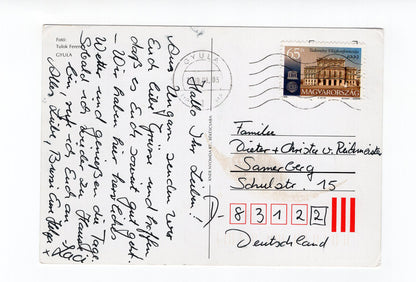 Fotó:
Tulok Ferenc
GYULA
Hallo Ihr Lieben!
Aus Ungarn senden wir
Euch liebe Grüsse und hoffen,
daß es Euch soweit gut geht.
Wir haben hier herrliches
Wetter und genießen die Tage.
Sobald ich wieder zu Hause
bin, rufe ich Euch an.
Alles Liebe, Eure Helga
+ Laci
GYULA
65
1999
MAGYARORSZÁG
Familie
Dieter + Christa v.
Samerberg
Schulstr. 15
A-83122
Deutschland